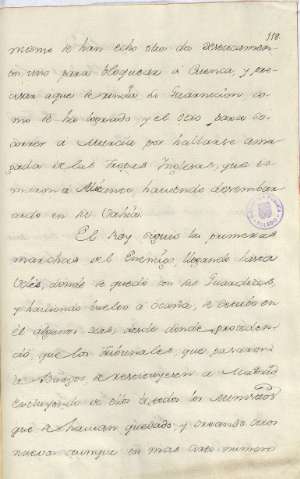 118.
mismo se han echo otro dos destacamen-
con uno para bloquear a Cuenca, y pre-
cisar aque se rinda su Guarnicion, co-
mo se ha logrado, y el otro para so-
correr a Murcia por hallarse ama-
gada de las Tropas Inglesas, que to-
maron a Alicante, haciendo desembar-
cando en su Bahia.
El Rey siguio las primeras
marchas del Enemigo, llegando hasta
Uclés, donde se quedo con sus Guardias,
y haviendo buelto a Ocaña, se detubo en
el algunos dias, desde donde
que los Tribunales, que pasaron
a Burgos, se restituyesen a Madrid
excluyendo de ellos a todos los Ministros
que se havian quedado y creando otros
nuevos aunque en mas corto numero